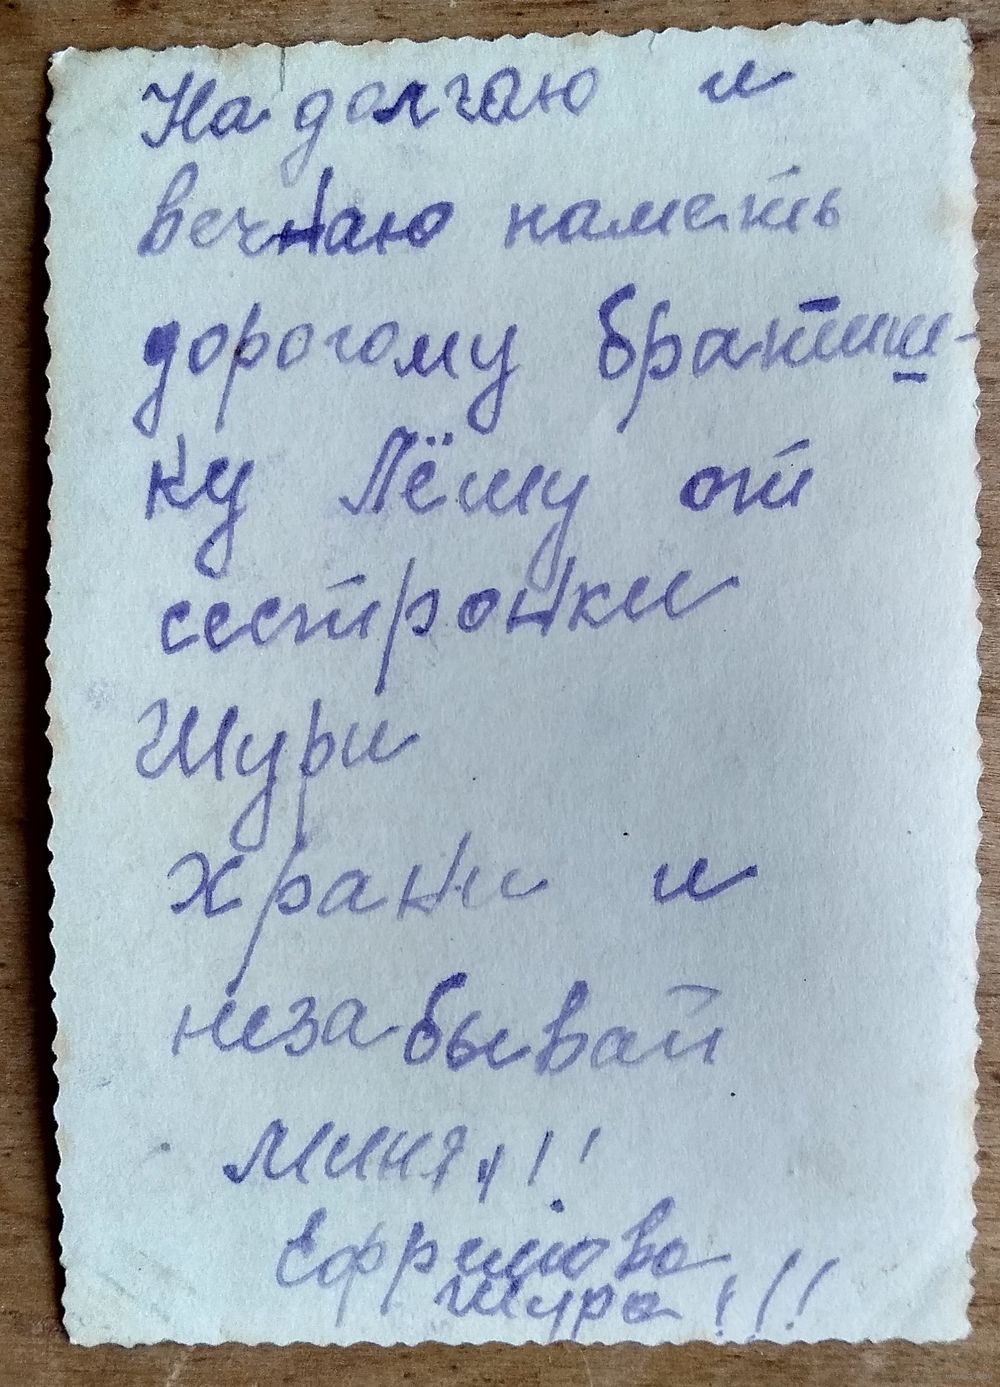 На долгаю и
вечнаю паметь
дорогому братиш-
ку Лёшу от
сестронки
Шури
храни и
незабывай
миня!!!
Ефримова
Шура!!!